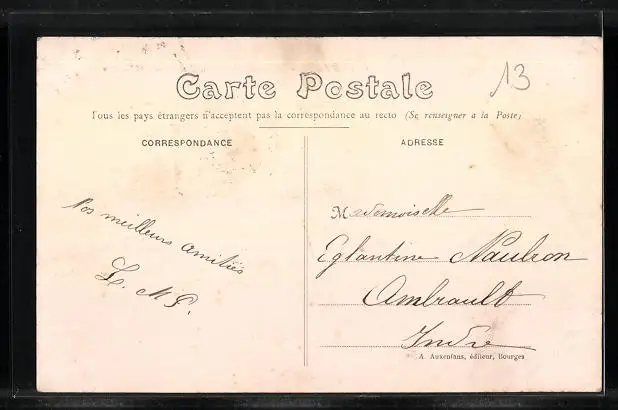 Carte Postale
13
Tous les pays étrangers n'acceptent pas la correspondance au recto (Se renseigner a la Poste)
CORRESPONDANCE
ADRESSE
Nos meilleurs amitiés
L. M. P.
Mademoiselle
Eglantine Naulron
Ambrault
Indre
A. Auxenfans, éditeur, Bourges